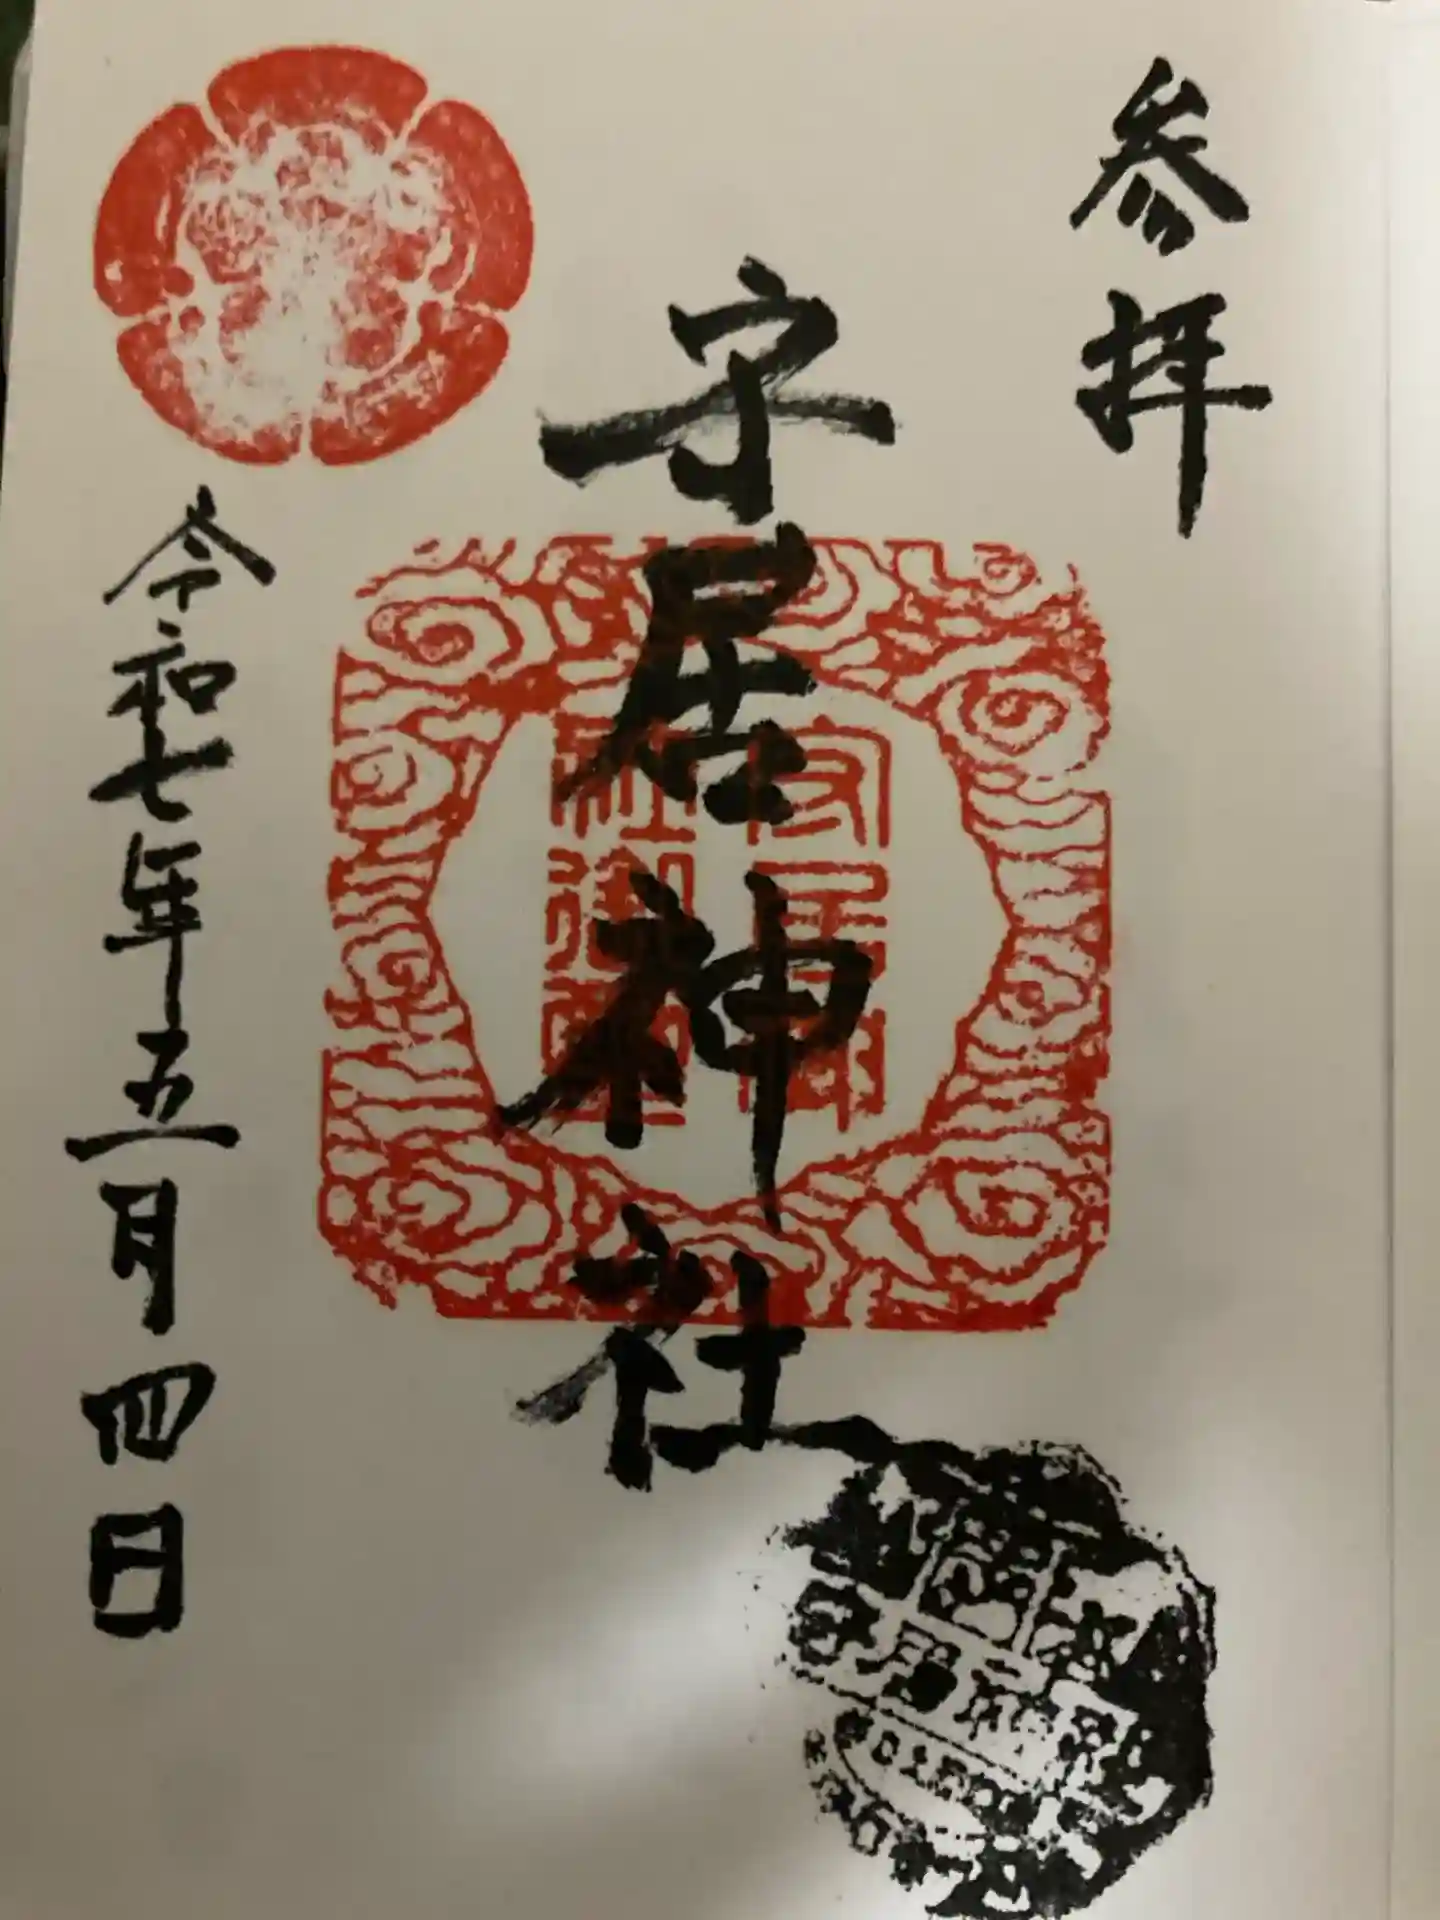 参拝
守居神社
令和七年五月四日
守居神
社御璽
守居神社